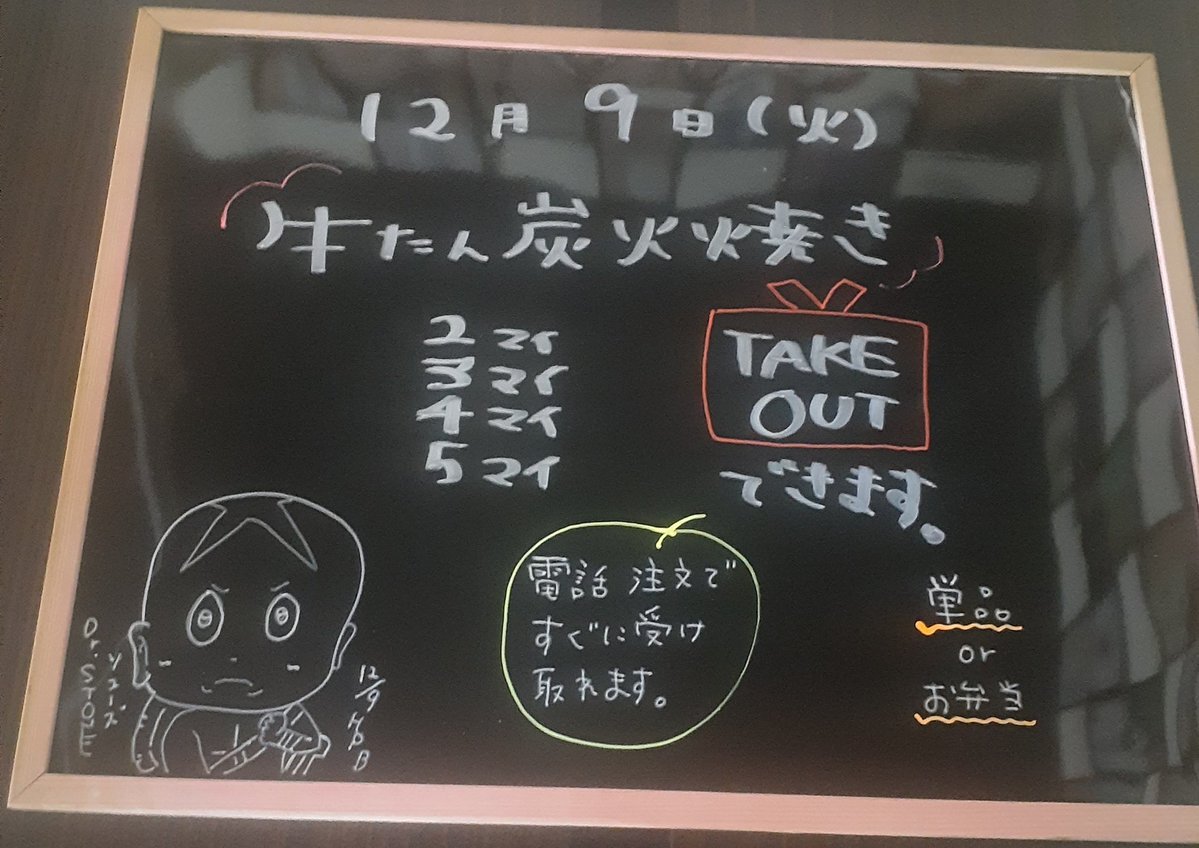 12月9日(火)
牛たん炭火焼き
2マイ
3マイ
4マイ
5マイ
TAKE
OUT
できます。
電話注文で
すぐに受け
取れます。
単品
or
お弁当
Dr.STONE
12/9